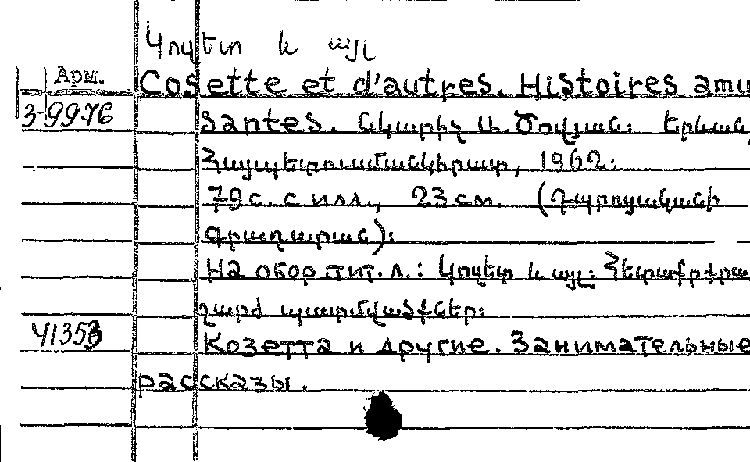 Կոզետ և այլ
Арм. Cosette et d'autres. Histoires amu
3-9976 santes. Նկարիչ Ա. Ծովյան: Երևան,
Հայպետուսմանկհրատ, 1962:
79 с. с илл., 23 см. (Դպրոցականի
գրադարան):
На обор. тит. л.: Կոզետ և այլ: Հետաքրքրա
շարժ պատմվածքներ:
41353 Козетта и другие. Занимательные
рассказы.